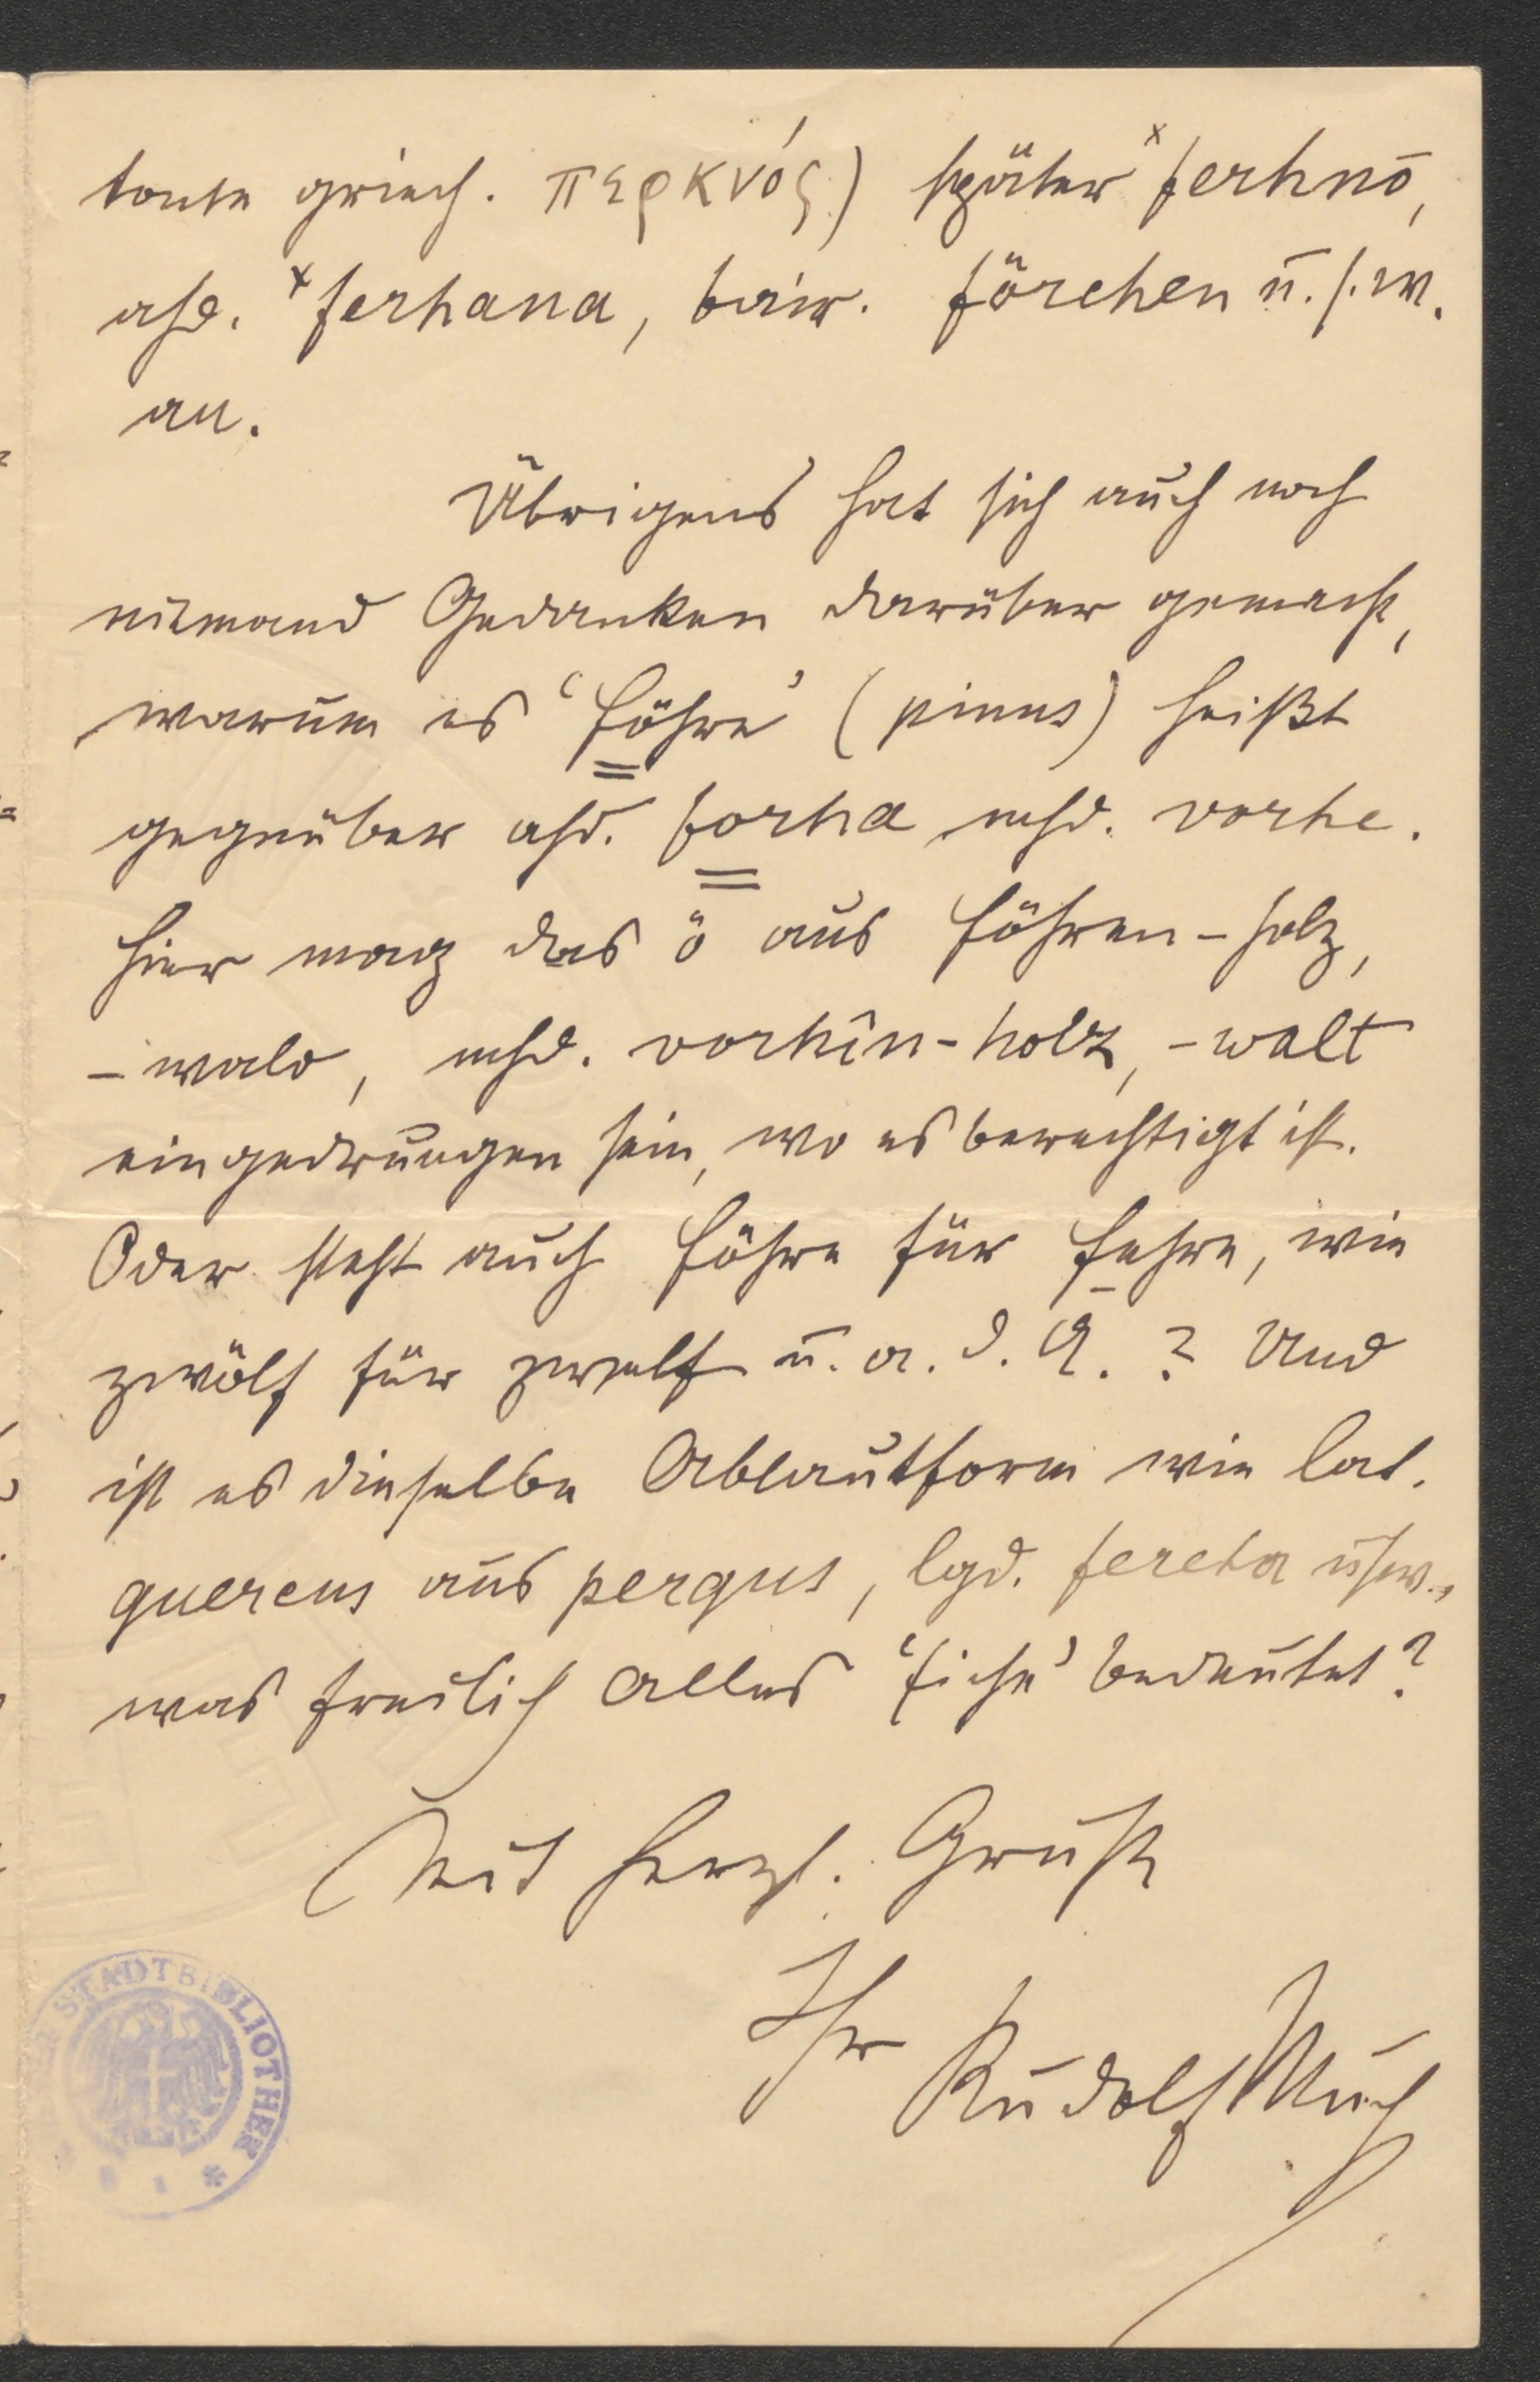 tonte griech. περκνός) später *ferhnō,
ahd. *ferhana, bair. förchen u. s. w.
an.
Übrigens hat sich auch noch
niemand Gedanken darüber gemacht,
warum es ‘Föhre’ (pinus) heißt
gegenüber ahd. forha mhd. vorhe.
Hier mag das ö aus Föhren-holz,
-wald, mhd. vorhîn-holz, -walt
eingedrungen sein, wo es berechtigt ist.
Oder steht auch Föhre für Fehre, wie
zwölf für zwelf u. a. d. A.? Und
ist es dieselbe Ablautform wie lat.
quercus aus perqus, lgd. fereha usw.,
was freilich alles ‘Eiche’ bedeutet?
Mit herzl. Gruß
Ihr
Rudolf Much
STADTBIBLIOTHEK